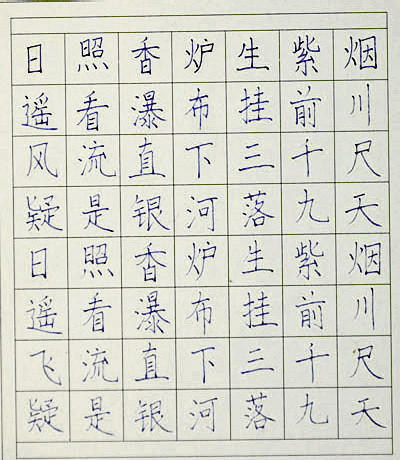 日照香炉生紫烟
遥看瀑布挂前川
风流直下三千尺
疑是银河落九天
日照香炉生紫烟
遥看瀑布挂前川
飞流直下三千尺
疑是银河落九天